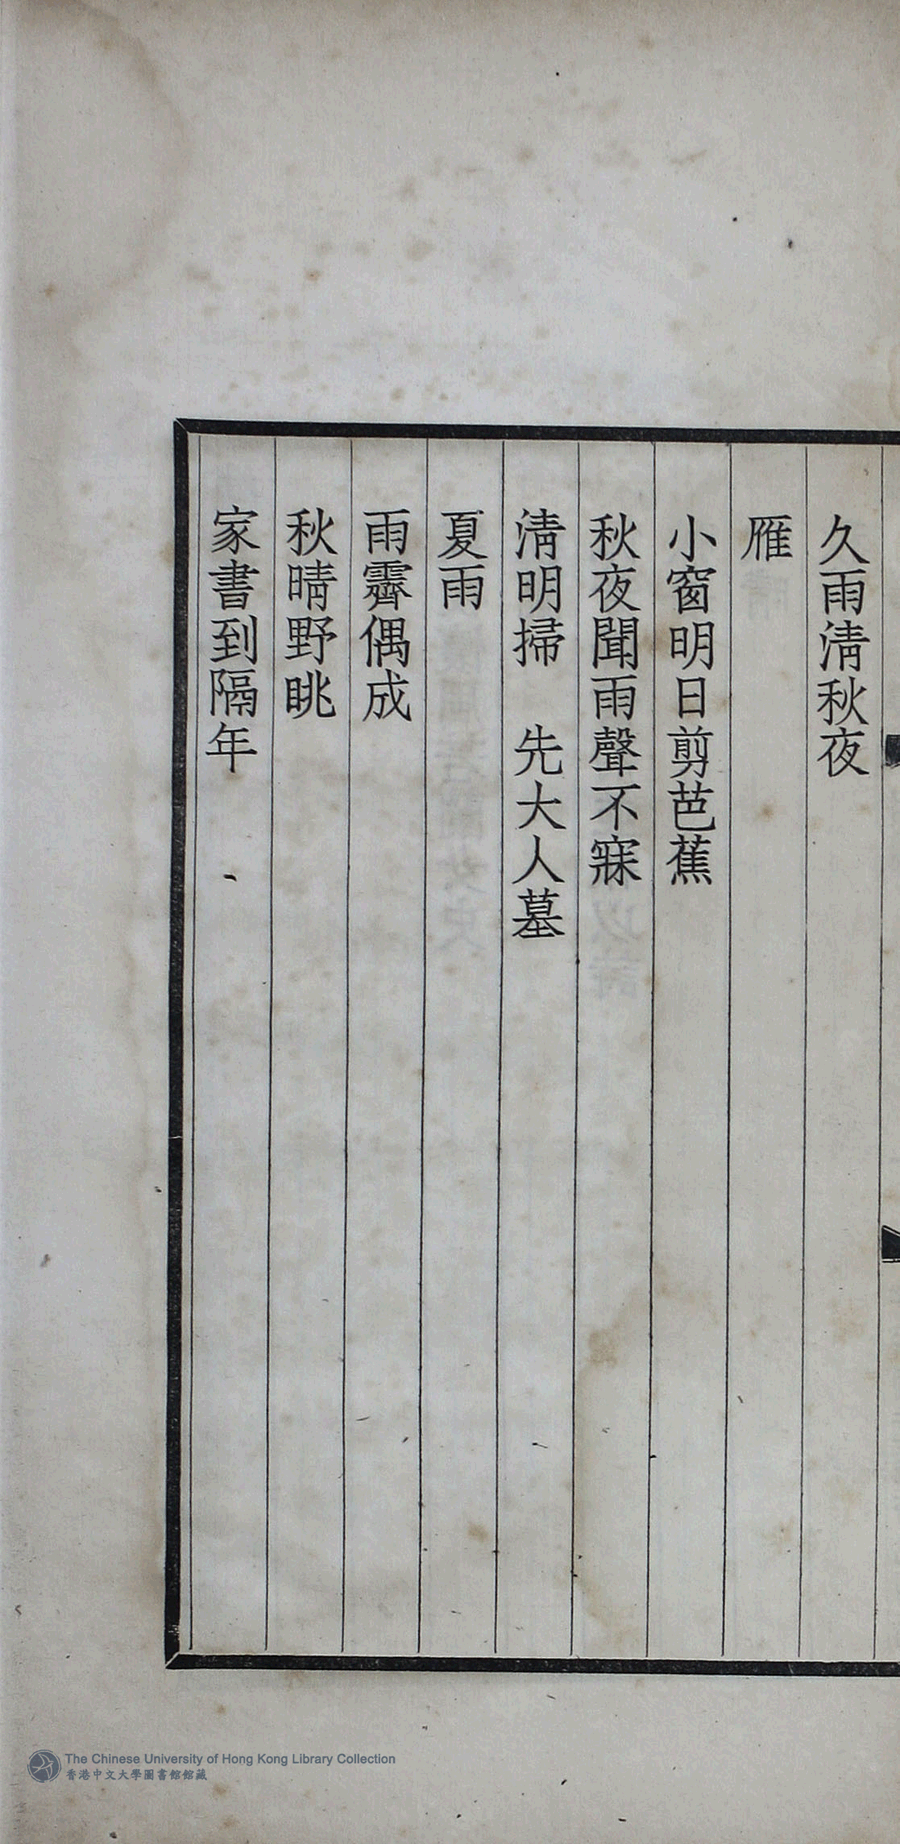 久雨淸秋夜
雁
小窗明日剪芭蕉
秋夜聞雨聲不寐
淸明掃　先大人墓
夏雨
雨霽偶成
秋晴野眺
家書到隔年
The Chinese University of Hong Kong Library Collection
香港中文大學圖書館館藏